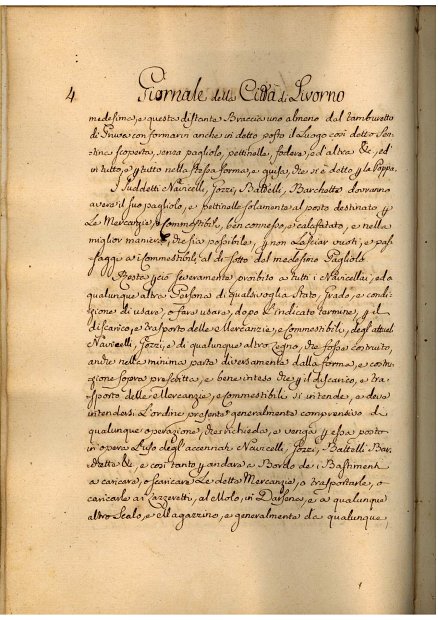 4 Giornale della Città di Livorno
medesime, e questa distante Braccia uno almeno dal tamburetto
di Pruva con formarsi anche in detto posto il luogo così detto Sen=
tina scoperta, senza pagliolo, pettinelle, fodera, ed altra &c, ed
in tutto, e p tutto nella stessa forma, e guisa, che si è detto p le Poppe.
I suddetti Navicelli, Gozzi, Battelli, Barchette dovranno
avere il suo pagliolo, e pettinelle solamente al posto destinato p
Le Mercanzie, e Commestibili, ben connesso, e calafatato, e nella
miglior maniera, che sia possibile, p non lasciar vuoti, e pas=
saggi a i commestibili al di sotto del medesimo Pagliolo.
Resta p ciò severamente proibito a tutti i Navicellai, ed a
qualunque altra Persona di qualsivoglia stato, grado, e condi=
zione di usare, o fare usare, dopo l'indicato termine, p il
discarico, e trasporto delle Mercanzie, e Commestibili, degl'attuali
Navicelli, Gozzi, e di qualunque altro Legno, che fosse costruito,
anche nella minima parte diversamente dalla forma, e costru=
zione sopra prescritta, e bene inteso che p il discarico, e tra=
sporto delle Mercanzie, e Commestibili s'intende, e deve
intendersi l'ordine presente generalmente comprensivo di
qualunque operazione, che richieda, e venga p essa posto
in opera l'uso degl'accennati Navicelli, Gozzi, Battelli Bar=
chette &c, e così tanto p andare a Bordo de i Bastimenti
a caricare, o scaricare Le dette Mercanzie, o trasportarle, o
caricarle a i Lazzeretti, al Molo, in Darsena, e a qualunque
altro Scalo, e Magazzino, e generalmente da qualunque